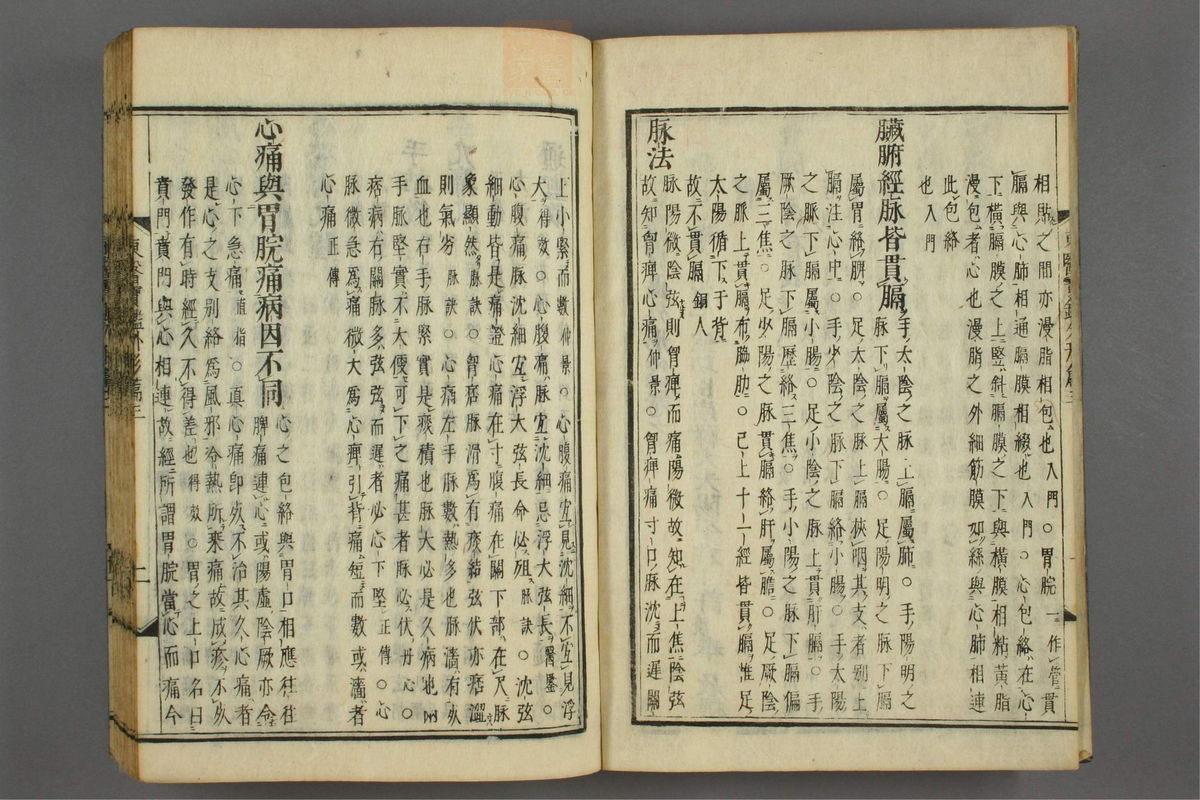 相貼之間亦漫脂相包也入門○胃脘一作管貫
膈與心肺相通膈膜相綴也入門○心包絡在心
下橫膈膜之上竪斜膈膜之下與橫膜相粘黃脂
漫包者心也漫脂之外細筋膜如絲與心肺相連
此包絡
也入門
臟腑經脉皆貫膈
手太陰之脉上膈屬肺○手陽明之
脉下膈屬大腸○足陽明之脉下膈
屬胃絡脾○足太陰之脉上膈挾咽其支者別上
膈注心中○手少陰之脉下膈絡小腸○手太陽
之脉下膈屬小腸○足少陰之脉上貫肝膈○手
厥陰之脉下膈歷絡三焦○手少陽之脉下膈偏
屬三焦○足少陽之脉貫膈絡肝屬膽○足厥陰
之脉上貫膈布脇肋○已上十一經皆貫膈惟足
太陽循下于背
故不貫膈銅人
脉法
脉陽微陰弦則胷痺而痛陽微故知在上焦陰弦
故知胷痺心痛仲景○胷痺痛寸口脉沈而遲關
上小緊而數仲景○心腹痛宜見沈細不宜見浮
大得效○心腹痛脉宜沈細忌浮大弦長醫鑒○
心腹痛脉沈細宜浮大弦長命必殂脉訣○沈弦
細動皆是痛證心痛在寸腹痛在關下部在尺脉
象顯然脉訣○胷痞脉滑爲有痰結弦伏亦痞澀
則氣劣脉訣○心痛左手脉數熱多也脉濇有死
血也右手脉緊實是痰積也脉大必是久病也兩
手脉堅實不大便可下之痛甚者脉必伏丹心○
痞病右關脉多弦弦而遲者必心下堅正傳○心
脉微急爲痛微大爲心痺引背痛短而數或濇者
心痛正傳
心痛與胃脘痛病因不同
心之包絡與胃口相應往往
脾痛連心或陽虛陰厥亦令
心下急痛直指○眞心痛卽死不治其久心痛者
是心之支別絡爲風邪冷熱所乘痛故成疹不死
發作有時經久不得差也得效○胃之上口名曰
賁門賁門與心相連故經所謂胃脘當心而痛今
東醫寶鑑外形篇三
二